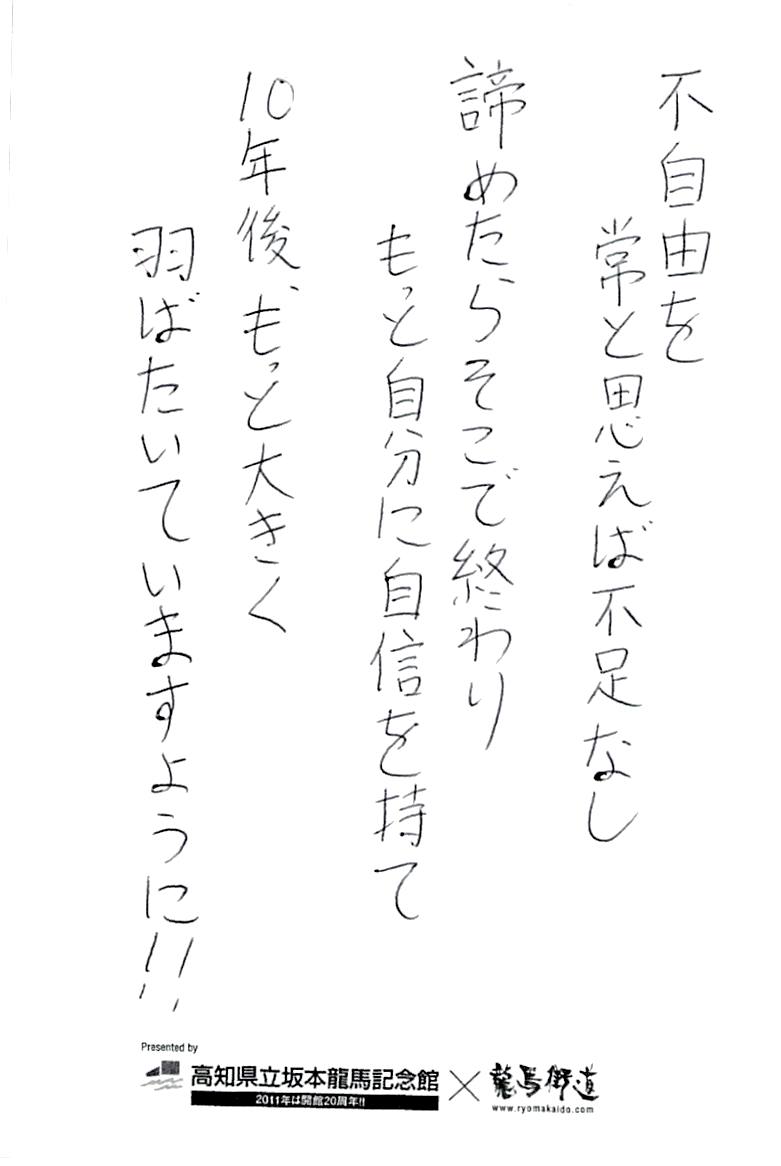 不自由を
常と思えば不足なし
諦めたらそこで終わり
もっと自分に自信を持て
10年後、もっと大きく
羽ばたいていますように!!
Presented by
高知県立坂本龍馬記念館×龍馬街道
2011年は開館20周年!!
www.ryomakaido.com